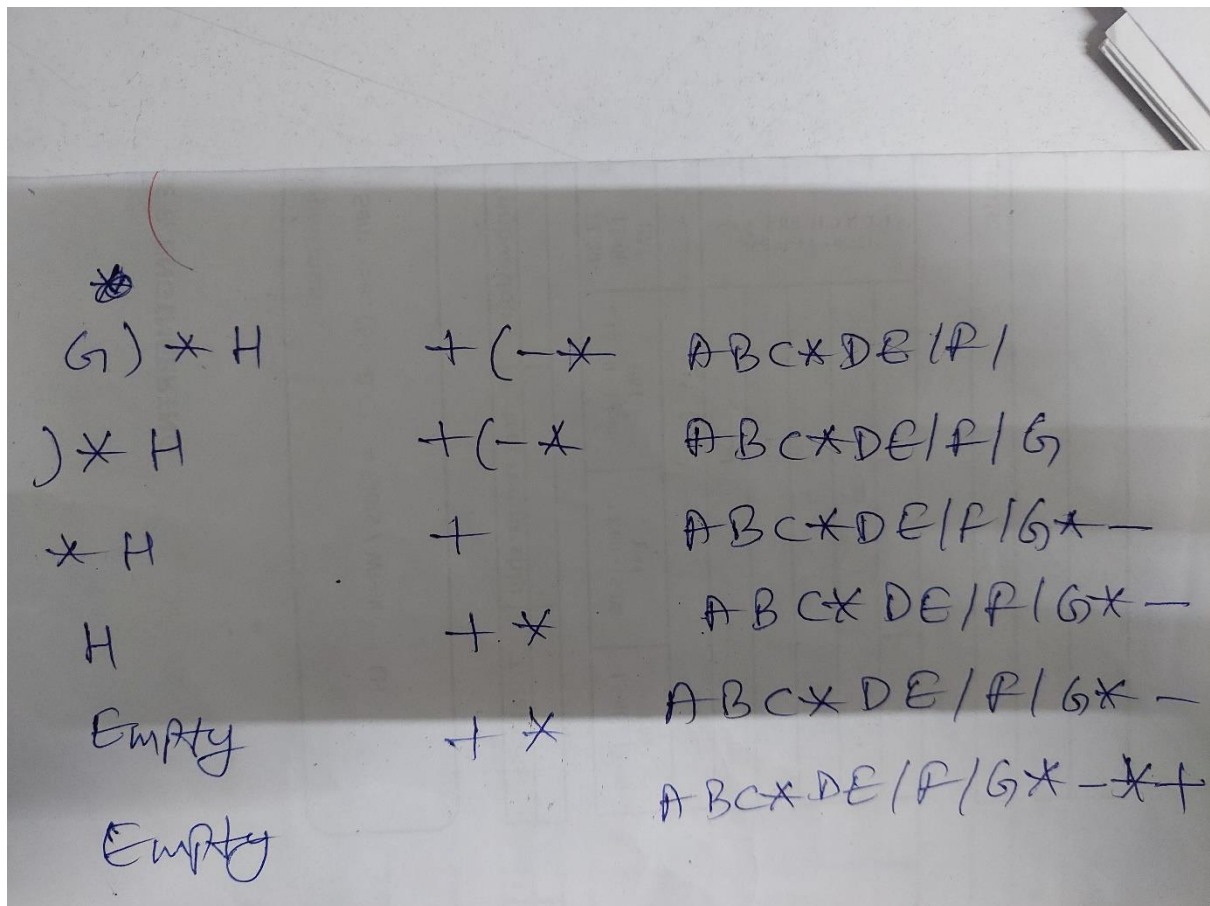 G) * H +(-* ABC*DE/F/
)* H +(-* ABC*DE/F/G
* H + ABC*DE/F/G*-
H +* ABC*DE/F/G*-
Empty +* ABC*DE/F/G*-
Empty ABC*DE/F/G*-*+